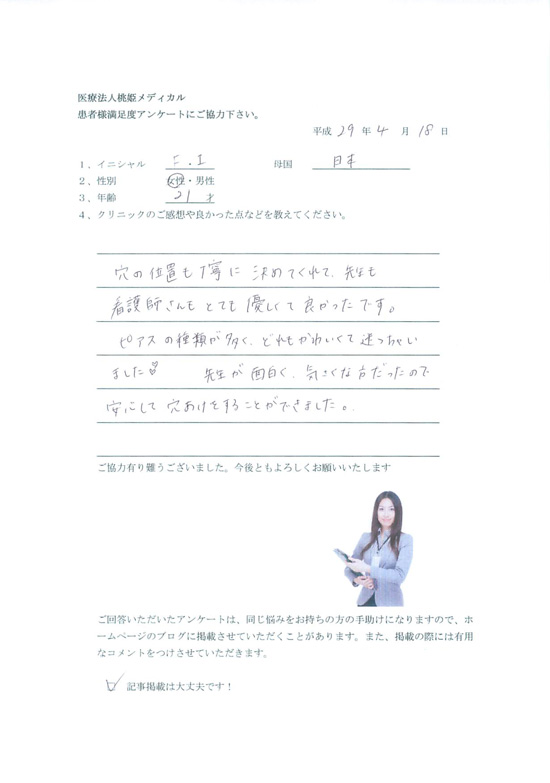 医療法人桃姫メディカル
患者様満足度アンケートにご協力下さい。
平成 29 年 4 月 18 日
1．イニシャル 母国 日本
2．性別 女性・男性
3．年齢 21 才
4．クリニックのご感想や良かった点などを教えてください。
穴の位置も丁寧に決めてくれて、先生も
看護師さんもとても優しくて良かったです。
ピアスの種類が多く、どれもかわいくて迷っちゃい
ました♡ 先生が面白く、気さくな方だったので
安心して穴あけをすることができました。
ご協力有り難うございました。今後ともよろしくお願いいたします
ご回答いただいたアンケートは、同じ悩みをお持ちの方の手助けになりますので、ホ
ームページのブログに掲載させていただくことがあります。また、掲載の際には有用
なコメントをつけさせていただきます。
☑ 記事掲載は大丈夫です！